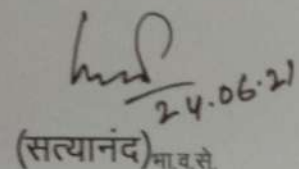 24.06.21
(सत्यानंद) भा.व.से.